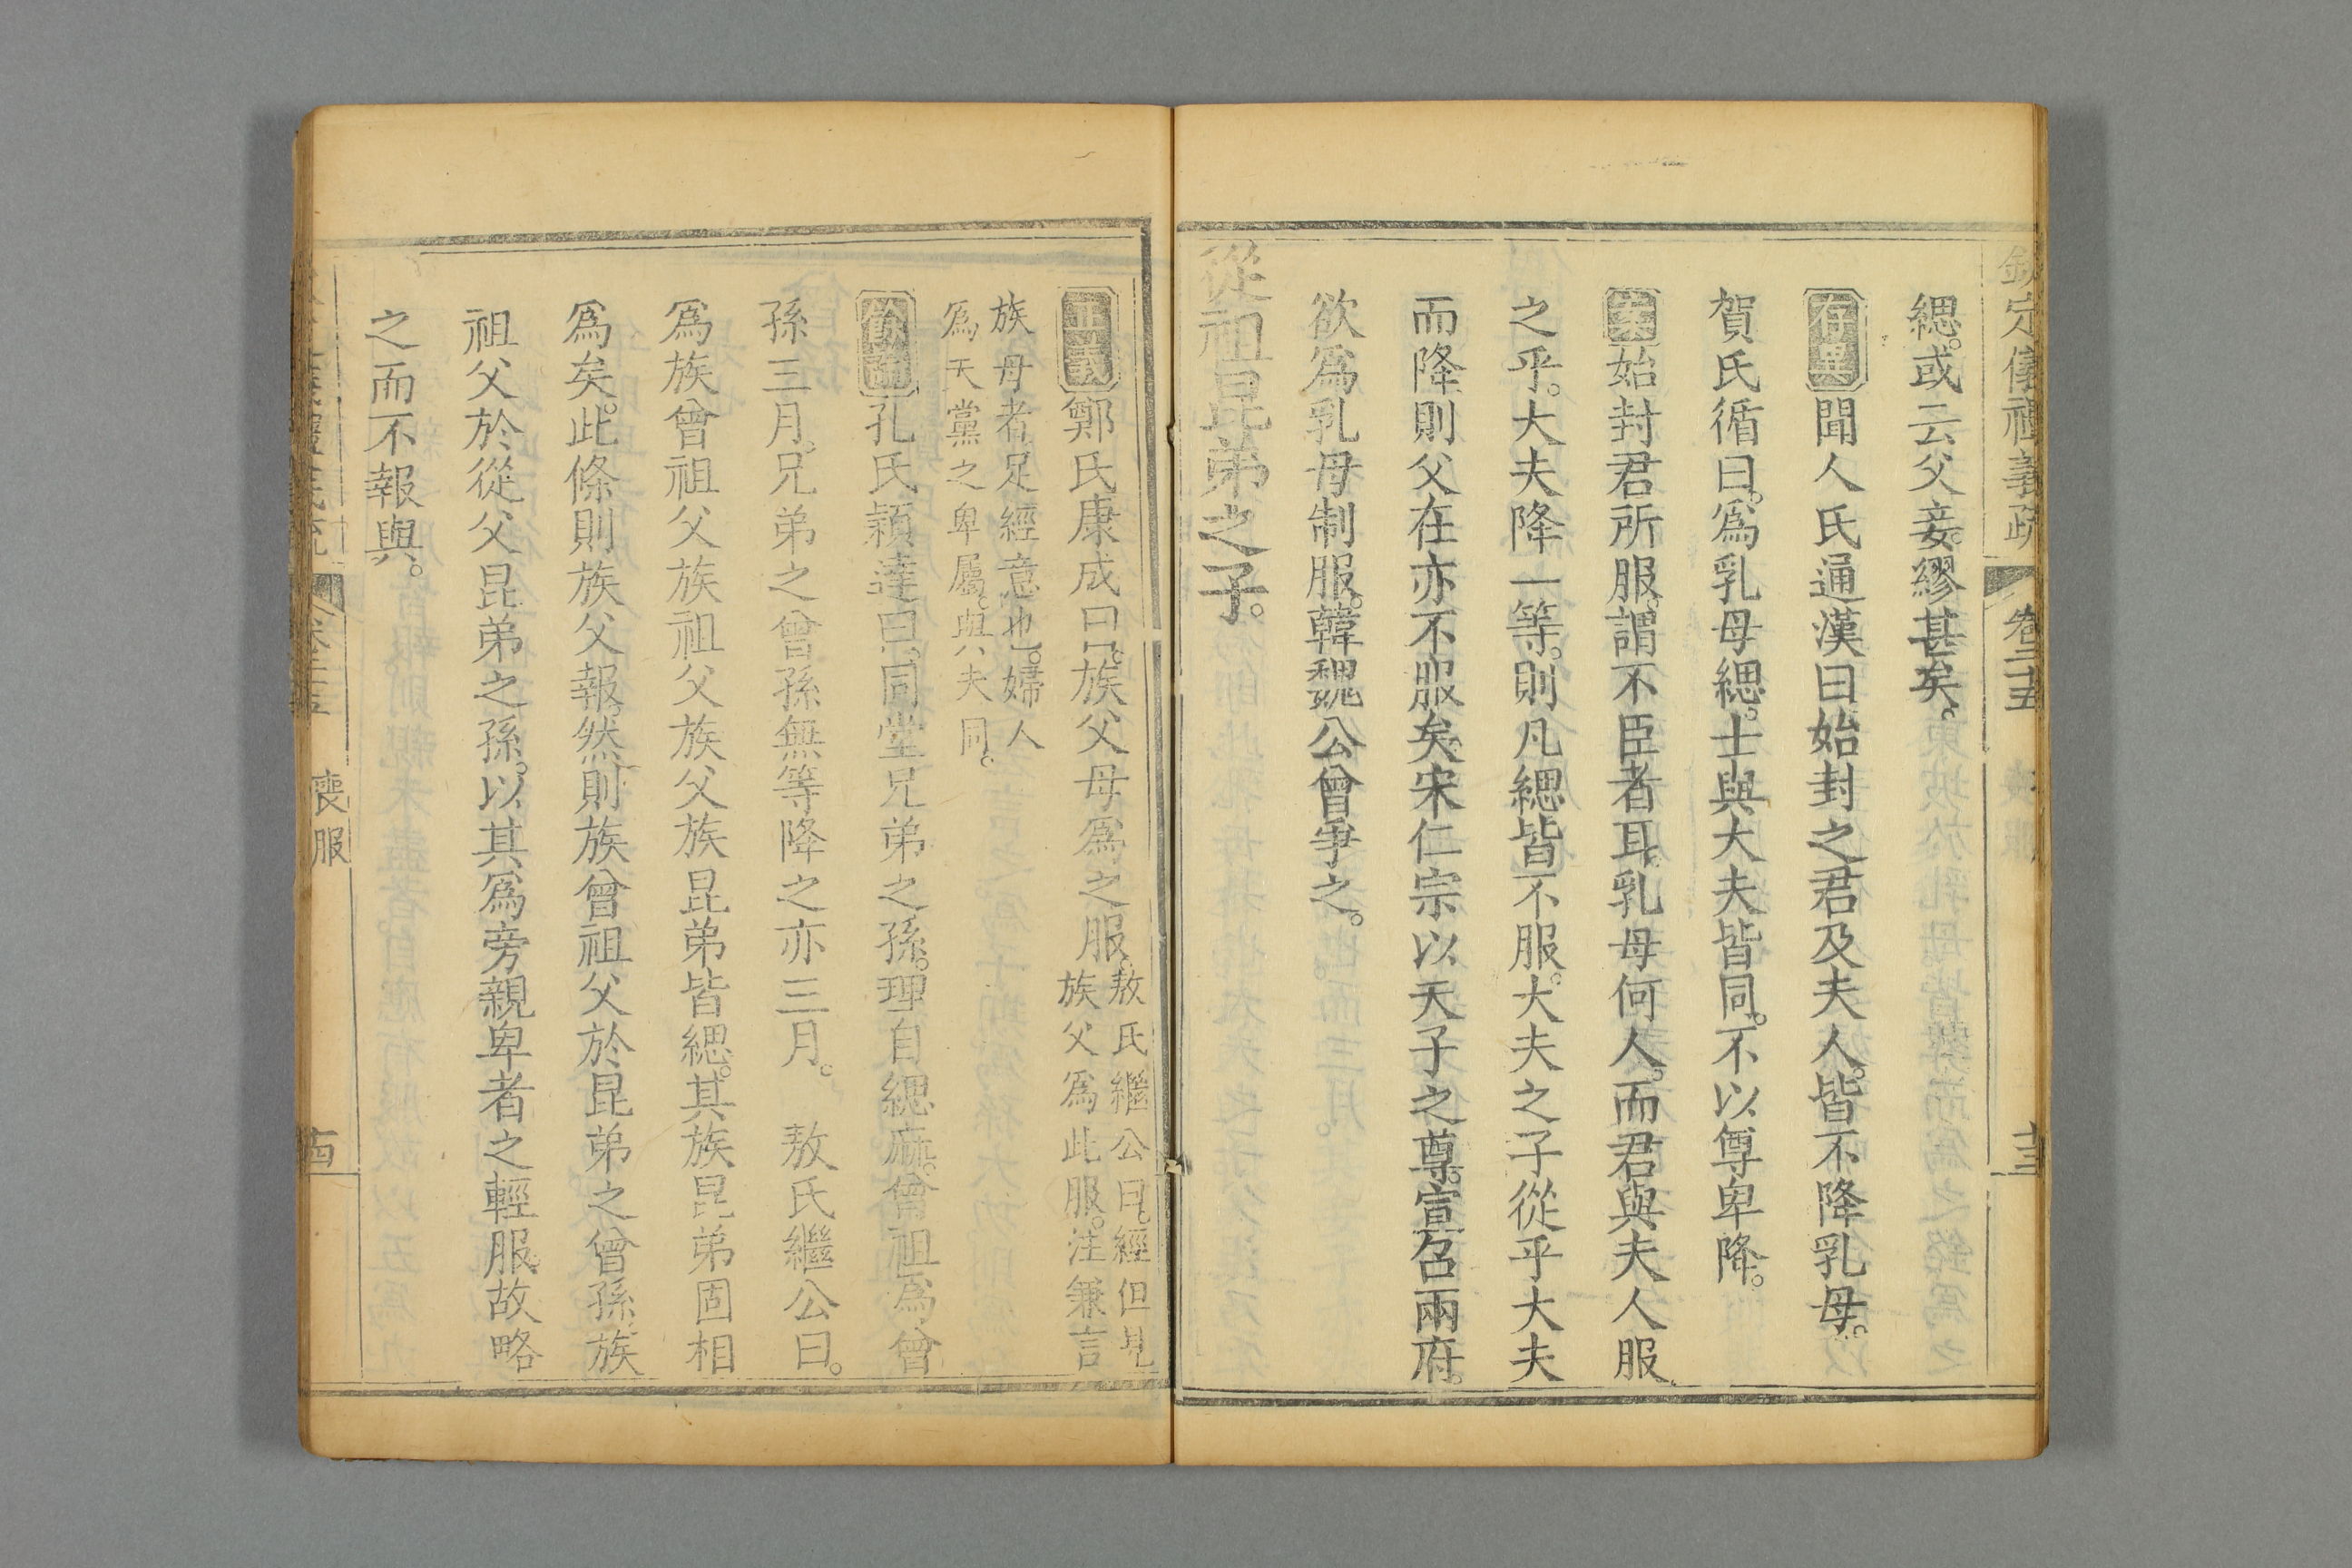 欽定儀禮義疏 卷二十五 十三
緦。或云父妾。繆甚矣。
存異聞人氏通漢曰始封之君及夫人。皆不降乳母。
賀氏循曰。爲乳母緦。士與大夫皆同。不以尊卑降。
案始封君所服。謂不臣者耳。乳母何人。而君與夫人服
之乎。大夫降一等。則凡緦皆不服。大夫之子從乎大夫
而降則父在亦不服矣。宋仁宗以天子之尊。宣召兩府。
欲爲乳母制服。韓魏公曾爭之。
從祖昆弟之子。
正義鄭氏康成曰。族父母爲之服。敖氏繼公曰。經但見
族父爲此服。注兼言
族母者。足經意也。婦人
爲夫黨之卑屬。與夫同。
餘論孔氏穎達曰。同堂兄弟之孫。理自緦麻。曾祖爲曾
孫三月。兄弟之曾孫無等降之亦三月。 敖氏繼公曰。
爲族曾祖父族祖父族父族昆弟皆緦。其族昆弟固相
爲矣。此條則族父報。然則族曾祖父於昆弟之曾孫。族
祖父於從父昆弟之孫。以其爲旁親卑者之輕服故略
之而不報與。
卷二十五 喪服 十四